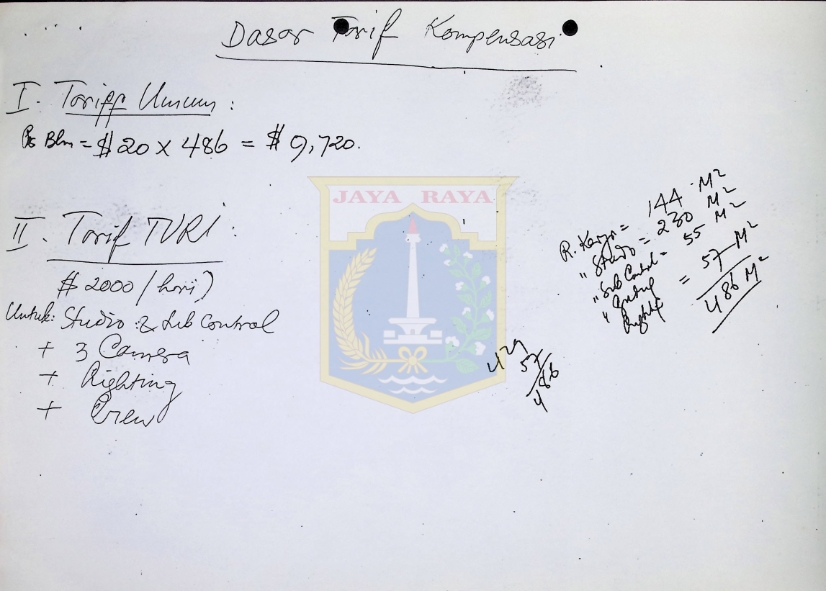 Dasar Tarif Kompensasi
I. Tariff Umum :
Per Bln = $ 20 x 486 = $ 9,720.
JAYA RAYA
II. Tarif TVRI :
$ 2000 / hari )
Untuk: Studio & Sub Control
+ 3 Camera
+ Righting
+ Crew
R. Kerja = 144 M²
" Studio = 230 M²
" Sub Control = 55 M²
" = 57 M²
486 M²
429
57
486